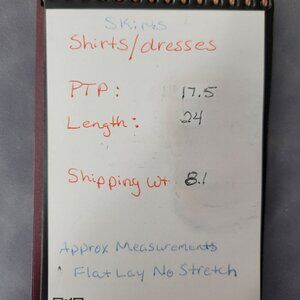 Skirts
Shirts/dresses
PTP: 17.5
Length: 24
Shipping wt 8.1
Approx Measurements
Flat Lay No Stretch